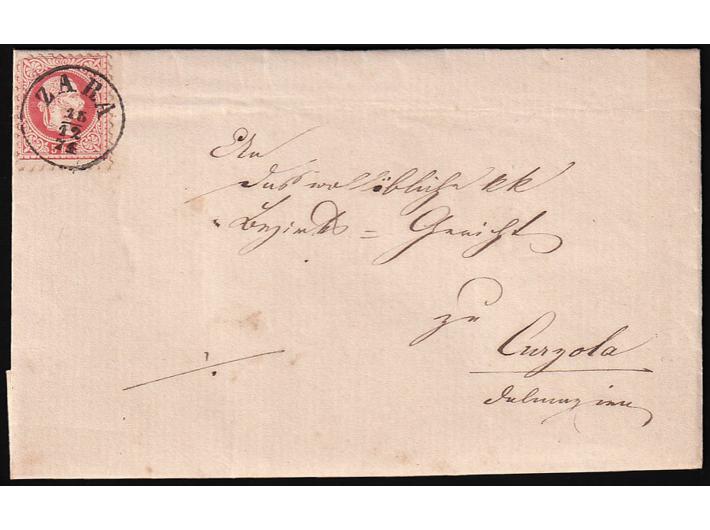 ZARA
18
12
74
5
An
das wollöbliche kk
Bezirks = Gericht
zu
Curzola
Dalmazien